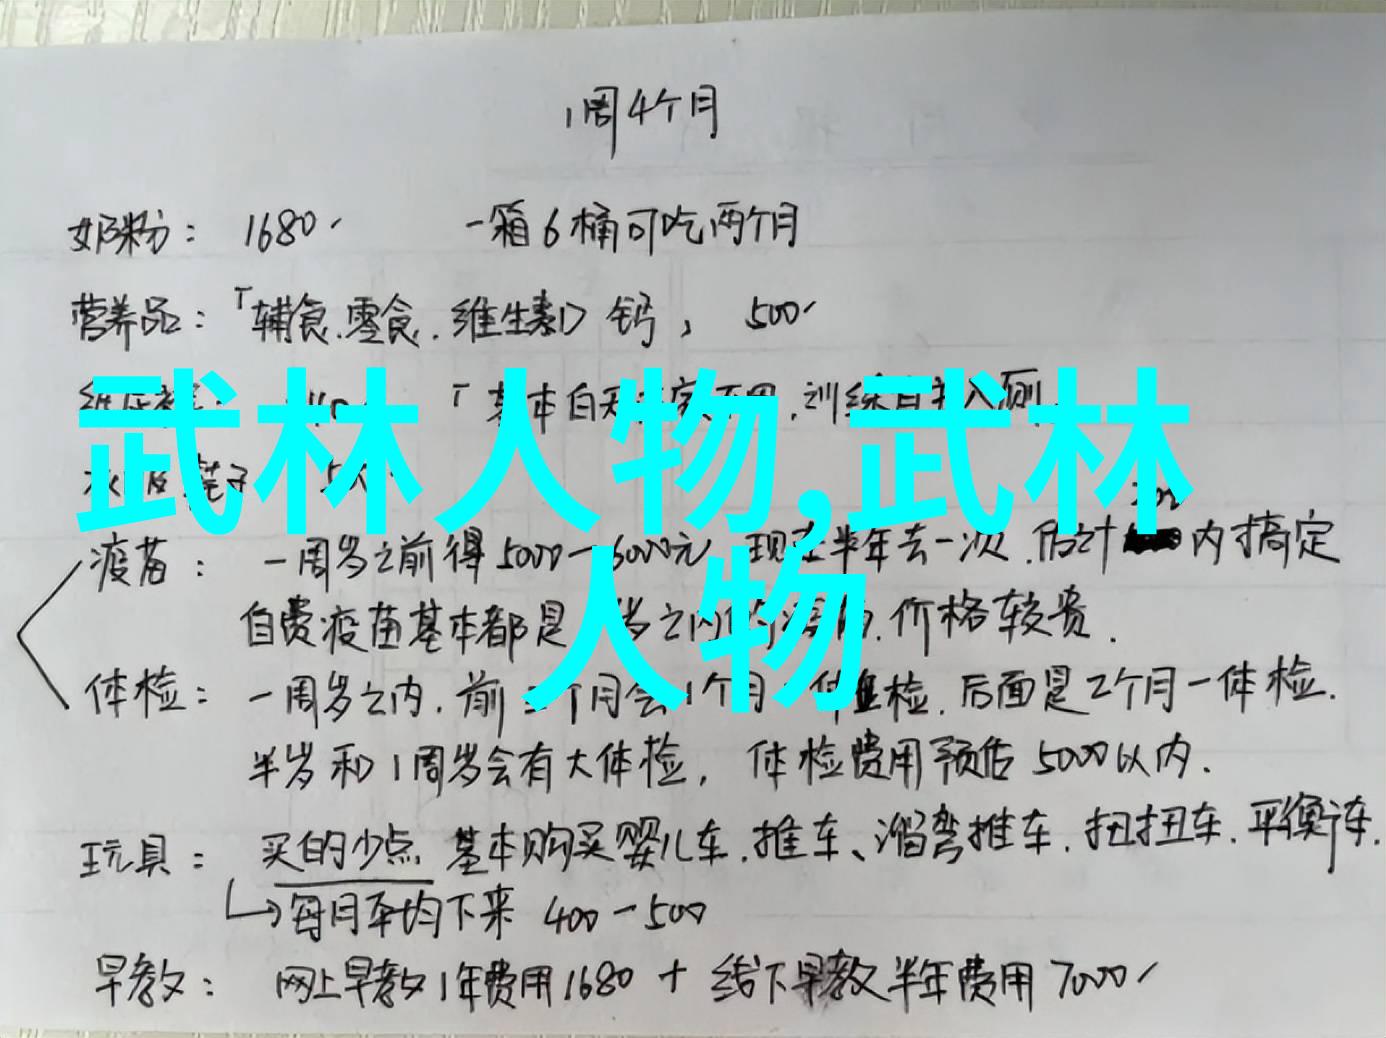 1周4个月
奶粉： 1680 一箱6桶可吃两个月
营养品：「辅食.零食.维生素D 钙， 500
武林人物,武林
人物
疫苗： 一周岁之前得5000-6000元 现在半年去一次.估计 内搞定
自费疫苗基本都是 岁之内 .价格较贵.
体检： 一周岁之内.前三个月会1个月 体检.后面是2个月一体检.
半岁和1周岁会有大体检， 体检费用预估5000以内.
玩具： 买的少点 基本购买婴儿车.推车、溜弯推车.扭扭车.平衡车.
每月平均下来 400-500
早教： 网上早教1年费用1680 + 线下早教半年费用7000